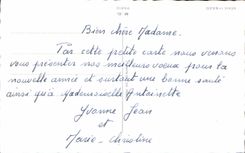 Bien chère Madame.
Par cette petite carte nous venons
vous présenter nos meilleurs voeux pour la
nouvelle année et surtout une bonne santé
ainsi qu'à Mademoiselle Antoinette
Yvonne Jean
et
Marie-Christine